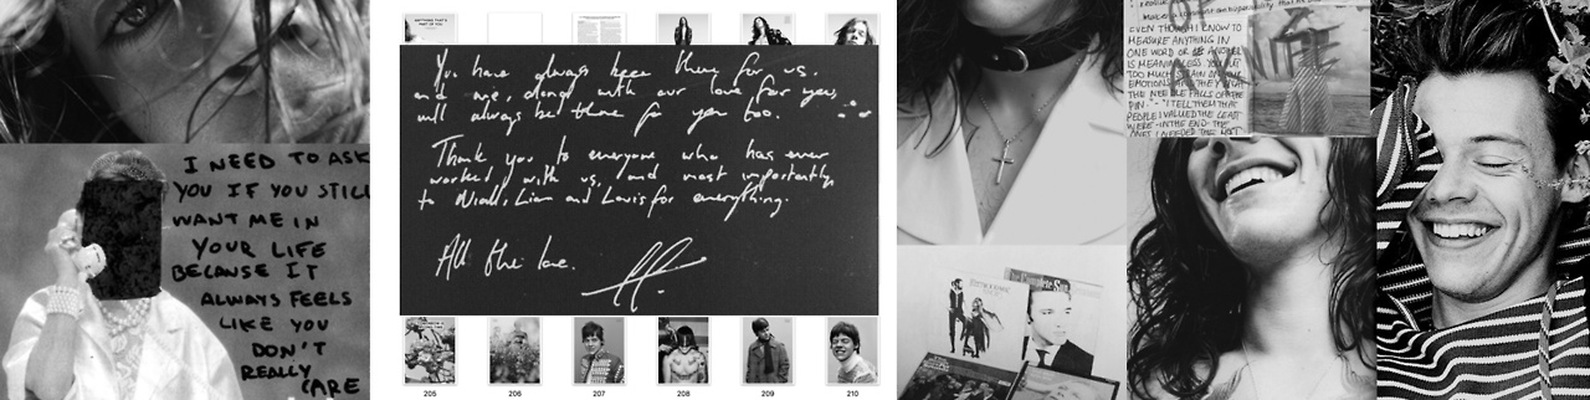 I NEED TO ASK
YOU IF YOU STILL
WANT ME IN
YOUR LIFE
BECAUSE IT
ALWAYS FEELS
LIKE YOU
DON'T
REALLY
CARE
ANYTHING THAT'S
PART OF YOU
You have always been there for us.
and we, along with our love for you,
will always be there for you too.
Thank you to everyone who has ever
worked with us, and most importantly
to Niall, Liam and Louis for everything.
All the love.
205
206
207
208
209
210
EVEN THOUGH I KNOW TO
MEASURE ANYTHING IN
ONE WORD OR ANSWER
IS MEANINGLESS. YOU PUT
TOO MUCH STRAIN ON YOUR
EMOTIONS AND THEY
THE NEEDLE FALLS OFF THE
PIN." - "I TELL THEM THAT
PEOPLE I VALUED THE LEAST
WERE - IN THE END - THE
ONES I NEEDED THE MOST
FLEETWOOD MAC
The Complete Sun